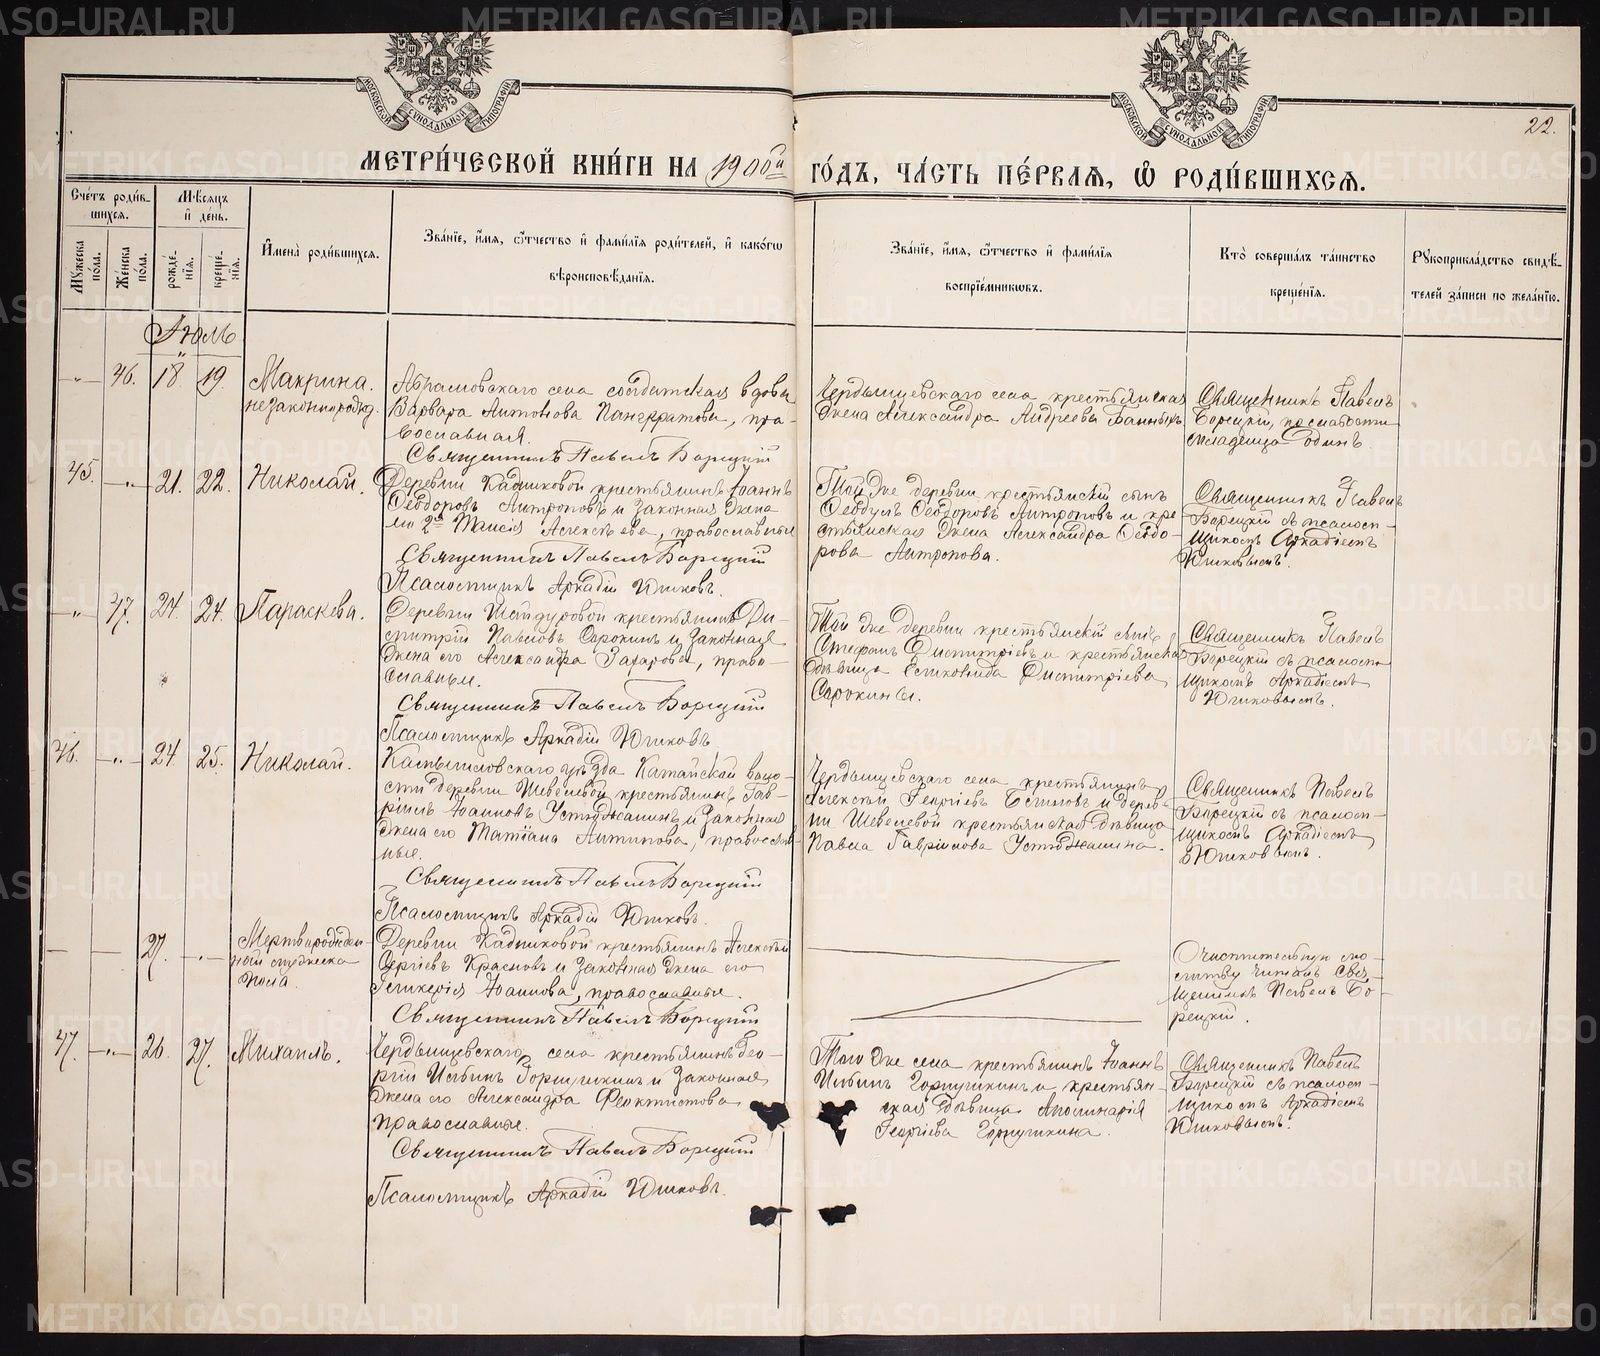 METRIKI.GASO-URAL.RU
МОСКОВСКОЙ СѴНОДАЛЬНОЙ ТИПОГРАФІИ
МОСКОВСКОЙ СѴНОДАЛЬНОЙ ТИПОГРАФІИ
22.
МЕТРИ́ЧЕСКОЙ КНИ́ГИ НА 1900й ГО́ДЪ, ЧА́СТЬ ПЕ́РВАѦ, Ѽ РОДИ́ВШИХСѦ.
Сче́тъ роди́в-
шихсѧ.
Мꙋ́жеска по́ла.
Же́нска по́ла.
Мѣ́сѧцъ
и҆ де́нь.
рожде́-
нїѧ.
креще́-
нїѧ.
И҆мена̀ роди́вшихсѧ.
Зва́нїе, и҆́мѧ, ѻ҆́тчество и҆ фами́лїѧ роди́телей, и҆ како́гѡ
вѣроисповѣ́данїѧ.
Зва́нїе, и҆́мѧ, ѻ҆́тчество и҆ фами́лїѧ
воспрїе́мникѡвъ.
Кто̀ соверша́лъ та́инство
креще́нїѧ.
Рꙋкоприкла́дство свидѣ́-
телей за́писи по жела́нїю.
Іюль
-„- 46. 18. 19. Макрина.
незаконнорожд.
Абрамовскаго села солдатская вдова
Варвара Антонова Панкратова, пра-
вославная.
Священникъ Павелъ Борецкій
Чердынцевскаго села крестьянская
жена Александра Андреева Банныхъ
Священникъ Павелъ
Борецкій, по слабости
младенца одинъ.
45. -„- 21. 22. Николай.
Деревни Кадниковой крестьянинъ Іоаннъ
Ѳеодоровъ Антроповъ и законная жена
Алексѣева, православные
Священникъ Павелъ Борецкій
Псаломщикъ Аркадій Юшковъ.
Той же деревни крестьянскій сынъ
Ѳеодулъ Ѳеодоровъ Антроповъ и кре-
стьянская жена Александра Ѳеодо-
рова Антропова.
Священникъ Павелъ
Борецкій съ псалом-
щикомъ Аркадіемъ
Юшковымъ.
„ 47. 24. 24. Параскева.
Деревни Шайдуровой крестьянинъ Ди-
митрій Павловъ Сорокинъ и законная
жена его Александра Захарова, право-
славные.
Священникъ Павелъ Борецкій
Псаломщикъ Аркадій Юшковъ
Той же деревни крестьянскій сынъ
Стефанъ Димитріевъ и крестьянская
дѣвица Еликонида Димитріева
Сорокины.
Священникъ Павелъ
Борецкій съ псалом-
щикомъ Аркадіемъ
Юшковымъ.
46. -„- 24. 25. Николай.
Камышловскаго уѣзда Катайской воло-
сти деревни Шевелевой крестьянинъ Гав-
рилъ Іоанновъ Устюжанинъ и законная
жена его Татіана Антипова, православ-
ные.
Священникъ Павелъ Борецкій
Псаломщикъ Аркадій Юшковъ.
Чердынцевскаго села крестьянинъ
Алексѣй Георгіевъ и дерев-
ни Шевелевой крестьянская дѣвица
Павла Гаврилова Устюжанина.
Священникъ Павелъ
Борецкій съ псалом-
щикомъ Аркадіемъ
Юшковымъ.
27. -„- Мертворожден-
ный мужеска
пола.
Деревни Кадниковой крестьянинъ Алексѣй
Сергіевъ Красновъ и законная жена его
Гликерія Іоаннова, православные.
Священникъ Павелъ Борецкій
Очистительную мо-
литву читалъ Свя-
щенникъ Павелъ Бо-
рецкій.
47. -„- 26. 27. Михаилъ.
Чердынцевскаго села крестьянинъ Гео-
ргій Ильинъ Горшушкинъ и законная
жена его Александра Феоктистова
православные.
Священникъ Павелъ Борецкій
Псаломщикъ Аркадій Юшковъ.
Того же села крестьянинъ Іоаннъ
Ильинъ и крестьян-
ская дѣвица Аполинарія
Георгіева
Священникъ Павелъ
Борецкій съ псалом-
щикомъ Аркадіемъ
Юшковымъ.